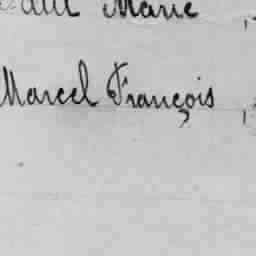 Marie ,
Marcel François ,